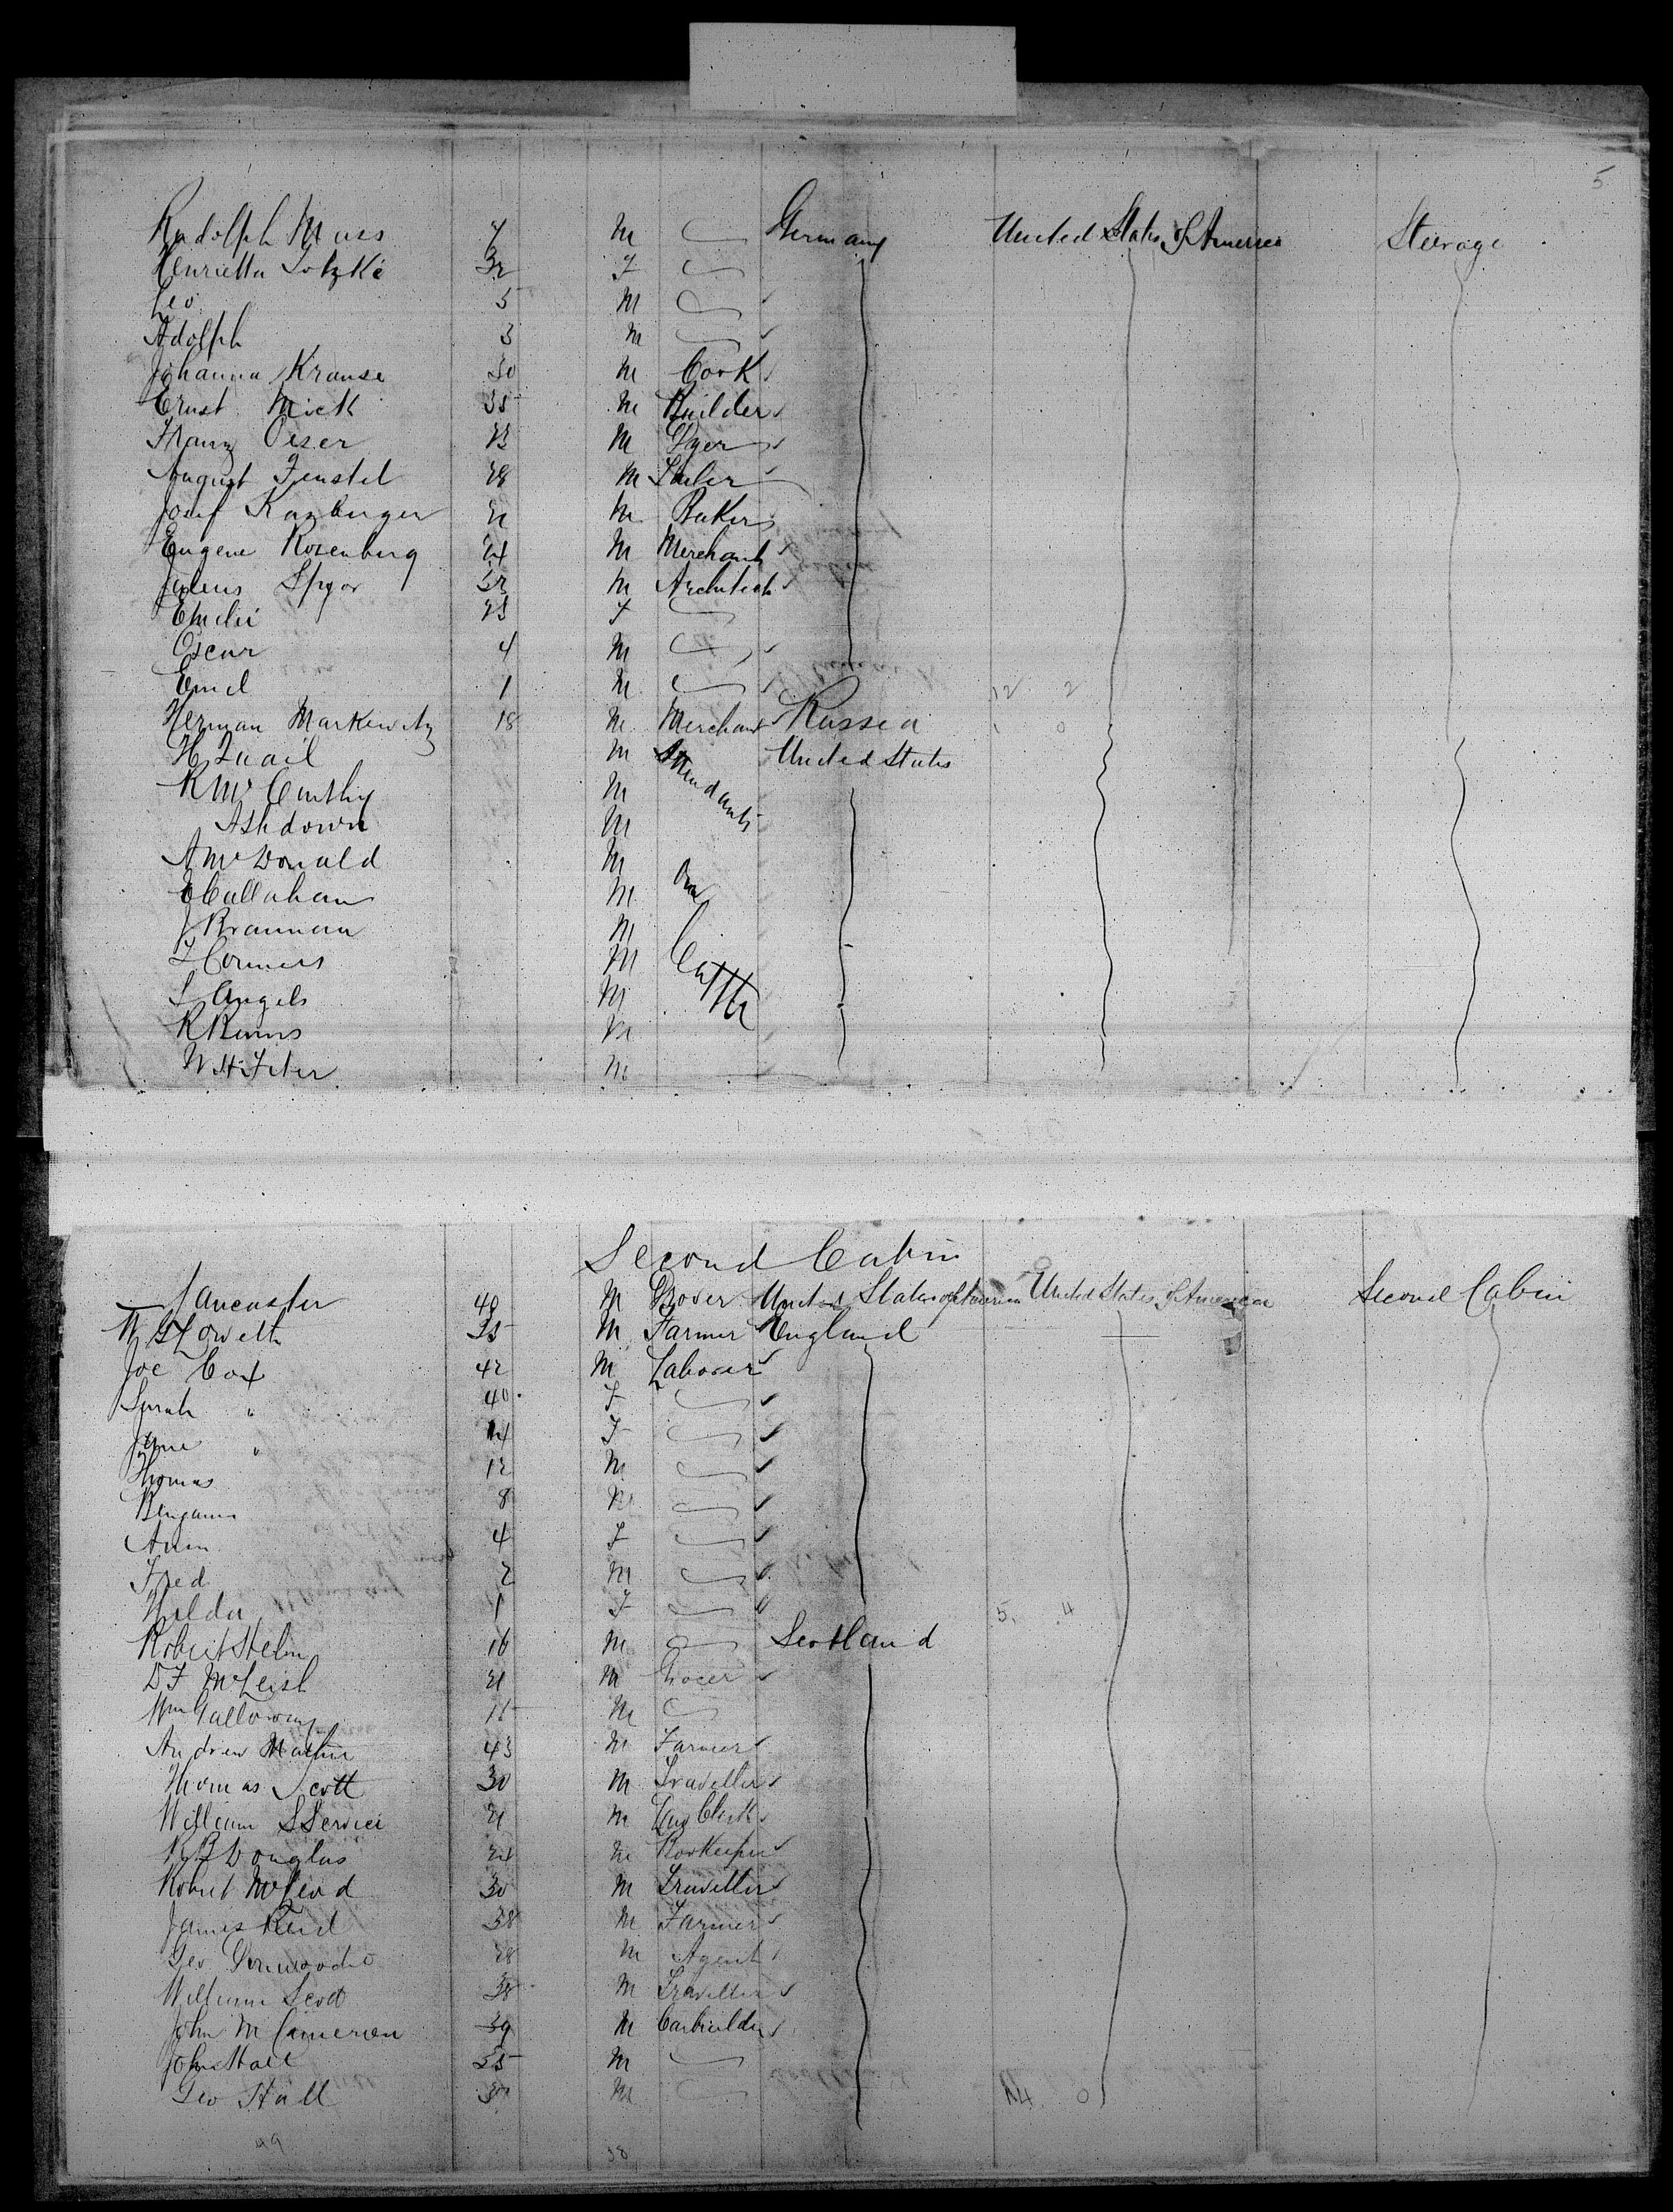 5
Rudolph Muss 4 M Germany United States of America Steerage
Henrietta Lotzke 32 F
Leo 5 M
Adolph 3 M
Johanna Krause 30 M Cook
Ernst Mick 35 M Builder
Franz Oeser M Dyer
August Fenstel 28 M
Josef Kazberger 21 M Baker
Eugene Rosenberg 24 M Merchant
Julius Spyor 32 M Architect
Emilie F
Oscar 4 M
Emil 1 M 12 2
Herman Markewitz 18 M Merchant Russia 1 0
H Quail M Attendants United States
R McCarthy M
Ashdown M
A McDonald M
E Callahan M on
J Brannan M
F Conners M Cattle
L Angels M
R Burns M
M
Second Cabin
Lancaster 48 M Drover United States of America United States of America Second Cabin
W G Lowell 35 M Farmer England
Joe Cox 42 M Laborer
Sarah " 40 F
Jane " 14 F
Thomas 12 M
Benjamin 8 M
Ann 4 F
Fred 2 M
Hilda 1 F 5 4
Robert 16 M Scotland
D F McLeish 21 M Grocer
Wm Galloway 15 M
Andrew 43 M Farmer
Thomas Scott 30 M Traveller
William S Service 21 M Law Clerk
R B Douglas 24 M Bookeeper
Robert McLeod 30 M Traveller
James Reid 38 M Farmer
Geo Dunwoodie 28 M Agent
William Scott 38 M Traveller
John M Camerien 39 M Carbuilder
John Hall 35 M
Geo Hall M 14 0
49 38